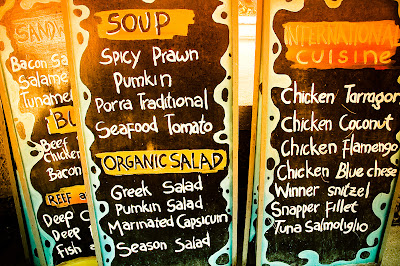 SANDW
Bacon Sa
Salame
Tunamel
BU
Beef
Chicken
Bacon
BEEF A
Deep C
Deep
Fish
SOUP
Spicy Prawn
Pumkin
Porra Traditional
Seafood Tomato
ORGANIC SALAD
Greek Salad
Pumkin Salad
Marinated Capsicum
Season Salad
INTERNATIONAL
CUISINE
Chicken Tarragon
Chicken Coconut
Chicken Flamengo
Chicken Blue chese
Winner snitzel
Snapper Fillet
Tuna Salmoriglio